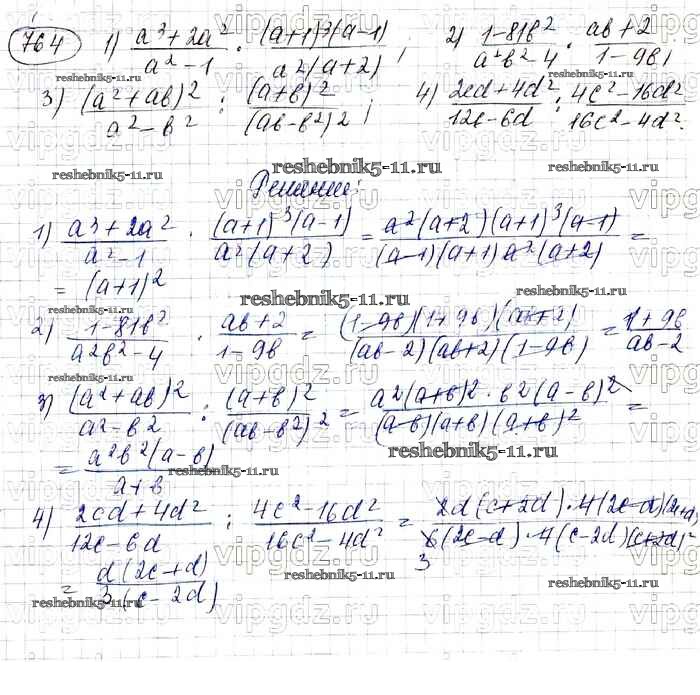 764 1) (a³+2a²)/(a²-1) · ((a+1)³(a-1))/(a²(a+2)); 2) (1-81b²)/(a²b²-4) · (ab+2)/(1-9b);
3) (a²+ab)²/(a²-b²) : (a+b)²/(ab-b²)²; 4) (2cd+4d²)/(12c-6d) : (4c²-16d²)/(16c²-4d²).
Решение:
1) (a³+2a²)/(a²-1) · ((a+1)³(a-1))/(a²(a+2)) = (a²(a+2)(a+1)³(a-1))/((a-1)(a+1)a²(a+2)) =
= (a+1)²
2) (1-81b²)/(a²b²-4) · (ab+2)/(1-9b) = ((1-9b)(1+9b)(ab+2))/((ab-2)(ab+2)(1-9b)) = (1+9b)/(ab-2)
3) (a²+ab)²/(a²-b²) : (a+b)²/(ab-b²)² = (a²(a+b)²·b²(a-b)²)/((a-b)(a+b)(a+b)²) =
= (a²b²(a-b))/(a+b)
4) (2cd+4d²)/(12c-6d) : (4c²-16d²)/(16c²-4d²) = (2d(c+2d)·4(2c-d)(2c+d))/(6(2c-d)·4(c-2d)(c+2d)) =
3
= (d(2c+d))/(3(c-2d))
vipgdz.ru
reshebnik5-11.ru